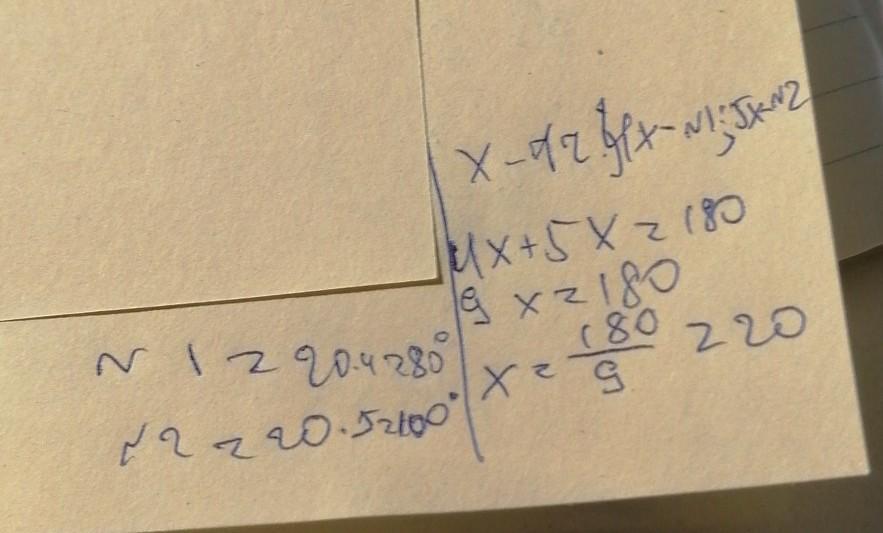 x - ч; 4x - N1; 5x - N2
4x + 5x = 180
9x = 180
x = 180/9 = 20
N1 = 20·4 = 80°
N2 = 20·5 = 100°